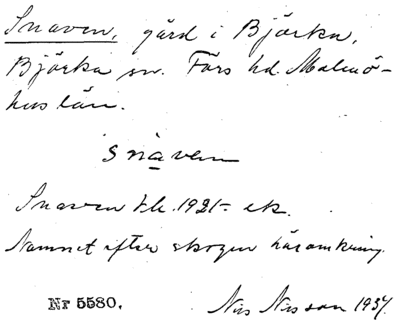 Snaven, gård i Björka,
Björka sn. Färs hd. Malmö-
hus län.
snaven
Snaven Ek. 1921- ek.
Namnet efter skogen häromkring.
Nr 5580. Nils Nilsson 1937.